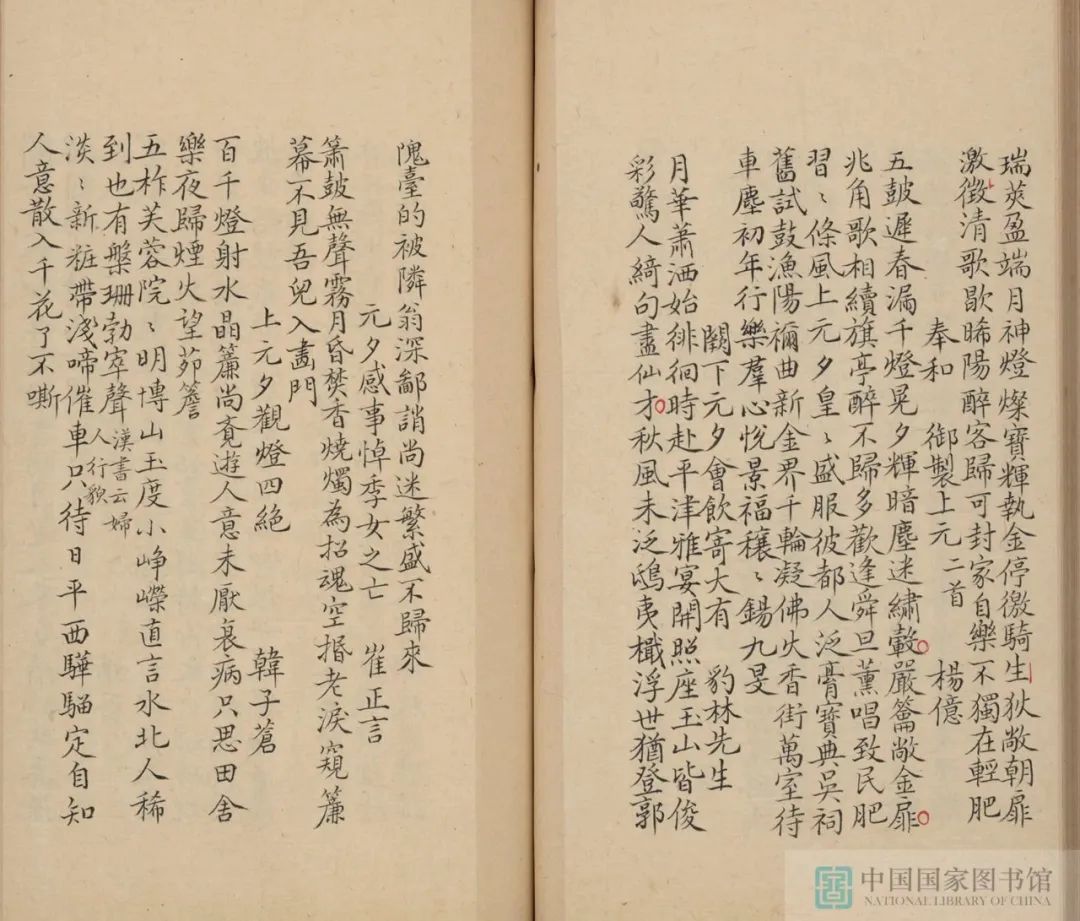 瑞莢盈端月神燈燦寶輝執金停徼騎生狄敞朝扉
激徵清歌歇晞陽醉客歸可封家自樂不獨在輕肥
奉和 御製上元二首 楊億
五鼓遲春漏千燈晃夕輝暗塵迷繡轂嚴籥敞金扉
兆角歌相續旗亭醉不歸多歡逢舜旦薰唱致民肥
習〻條風上元夕皇〻盛服彼都人泛膏寶典吳祠
舊試鼓漁陽禰曲新金界千輪凝佛火香街萬室待
車塵初年行樂羣心悅景福穰〻錫九旻
闕下元夕會飲寄大有 豹林先生
月華蕭洒始徘徊時赴平津雅宴開照座玉山皆俊
彩驚人綺句盡仙才秋風未泛鴟夷檝浮世猶登郭
隗臺的被隣翁深鄙誚尚迷繁盛不歸來
元夕感事悼季女之亡 崔正言
簫鼓無聲霧月昏焚香燒燭為招魂空揩老淚窺簾
幕不見吾兒入畫門
上元夕觀燈四絕 韓子蒼
百千燈射水晶簾尚覔遊人意未厭衰病只思田舍
樂夜歸煙火望茆簷
五柞芙蓉院〻明博山玉度小崢嶸直言水北人稀
到也有槃珊勃窣聲漢書云婦人行皃
淡〻新粧帶淺啼催車只待日平西驊騮定自知
人意散入千花了不嘶
中国国家图书馆
NATIONAL LIBRARY OF CHINA